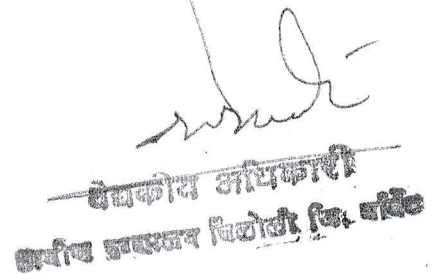 वैद्यकीय अधिकारी
ग्रामीण रुग्णालय बिलोली जि. नांदेड